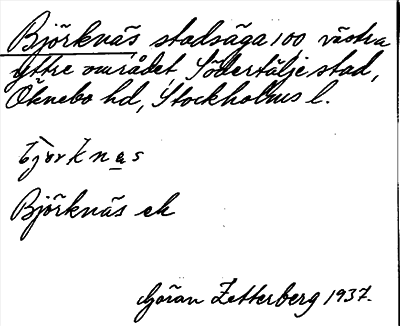 Björknäs, stadsäga 100, västra
yttre området, Södertälje stad,
Öknebo hd, Stockholms l.
bjorknas
Björknäs ek
Göran Zetterberg 1937.